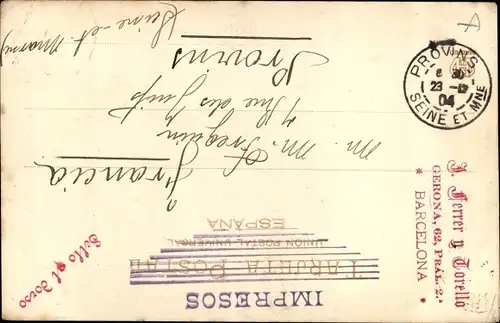 IMPRESOS
TARJETA POSTAL
UNION POSTAL UNIVERSAL
ESPAÑA
Sello al Dorso
M. M. Frequin
1 Rue des Juifs
Provins
Seine-et-Marne
Francia
PROVINS
6 30
23 -12
04
SEINE ET MNE
J. Ferrer y Torelló
GERONA, 62, PRAL. 2.ª
* BARCELONA *